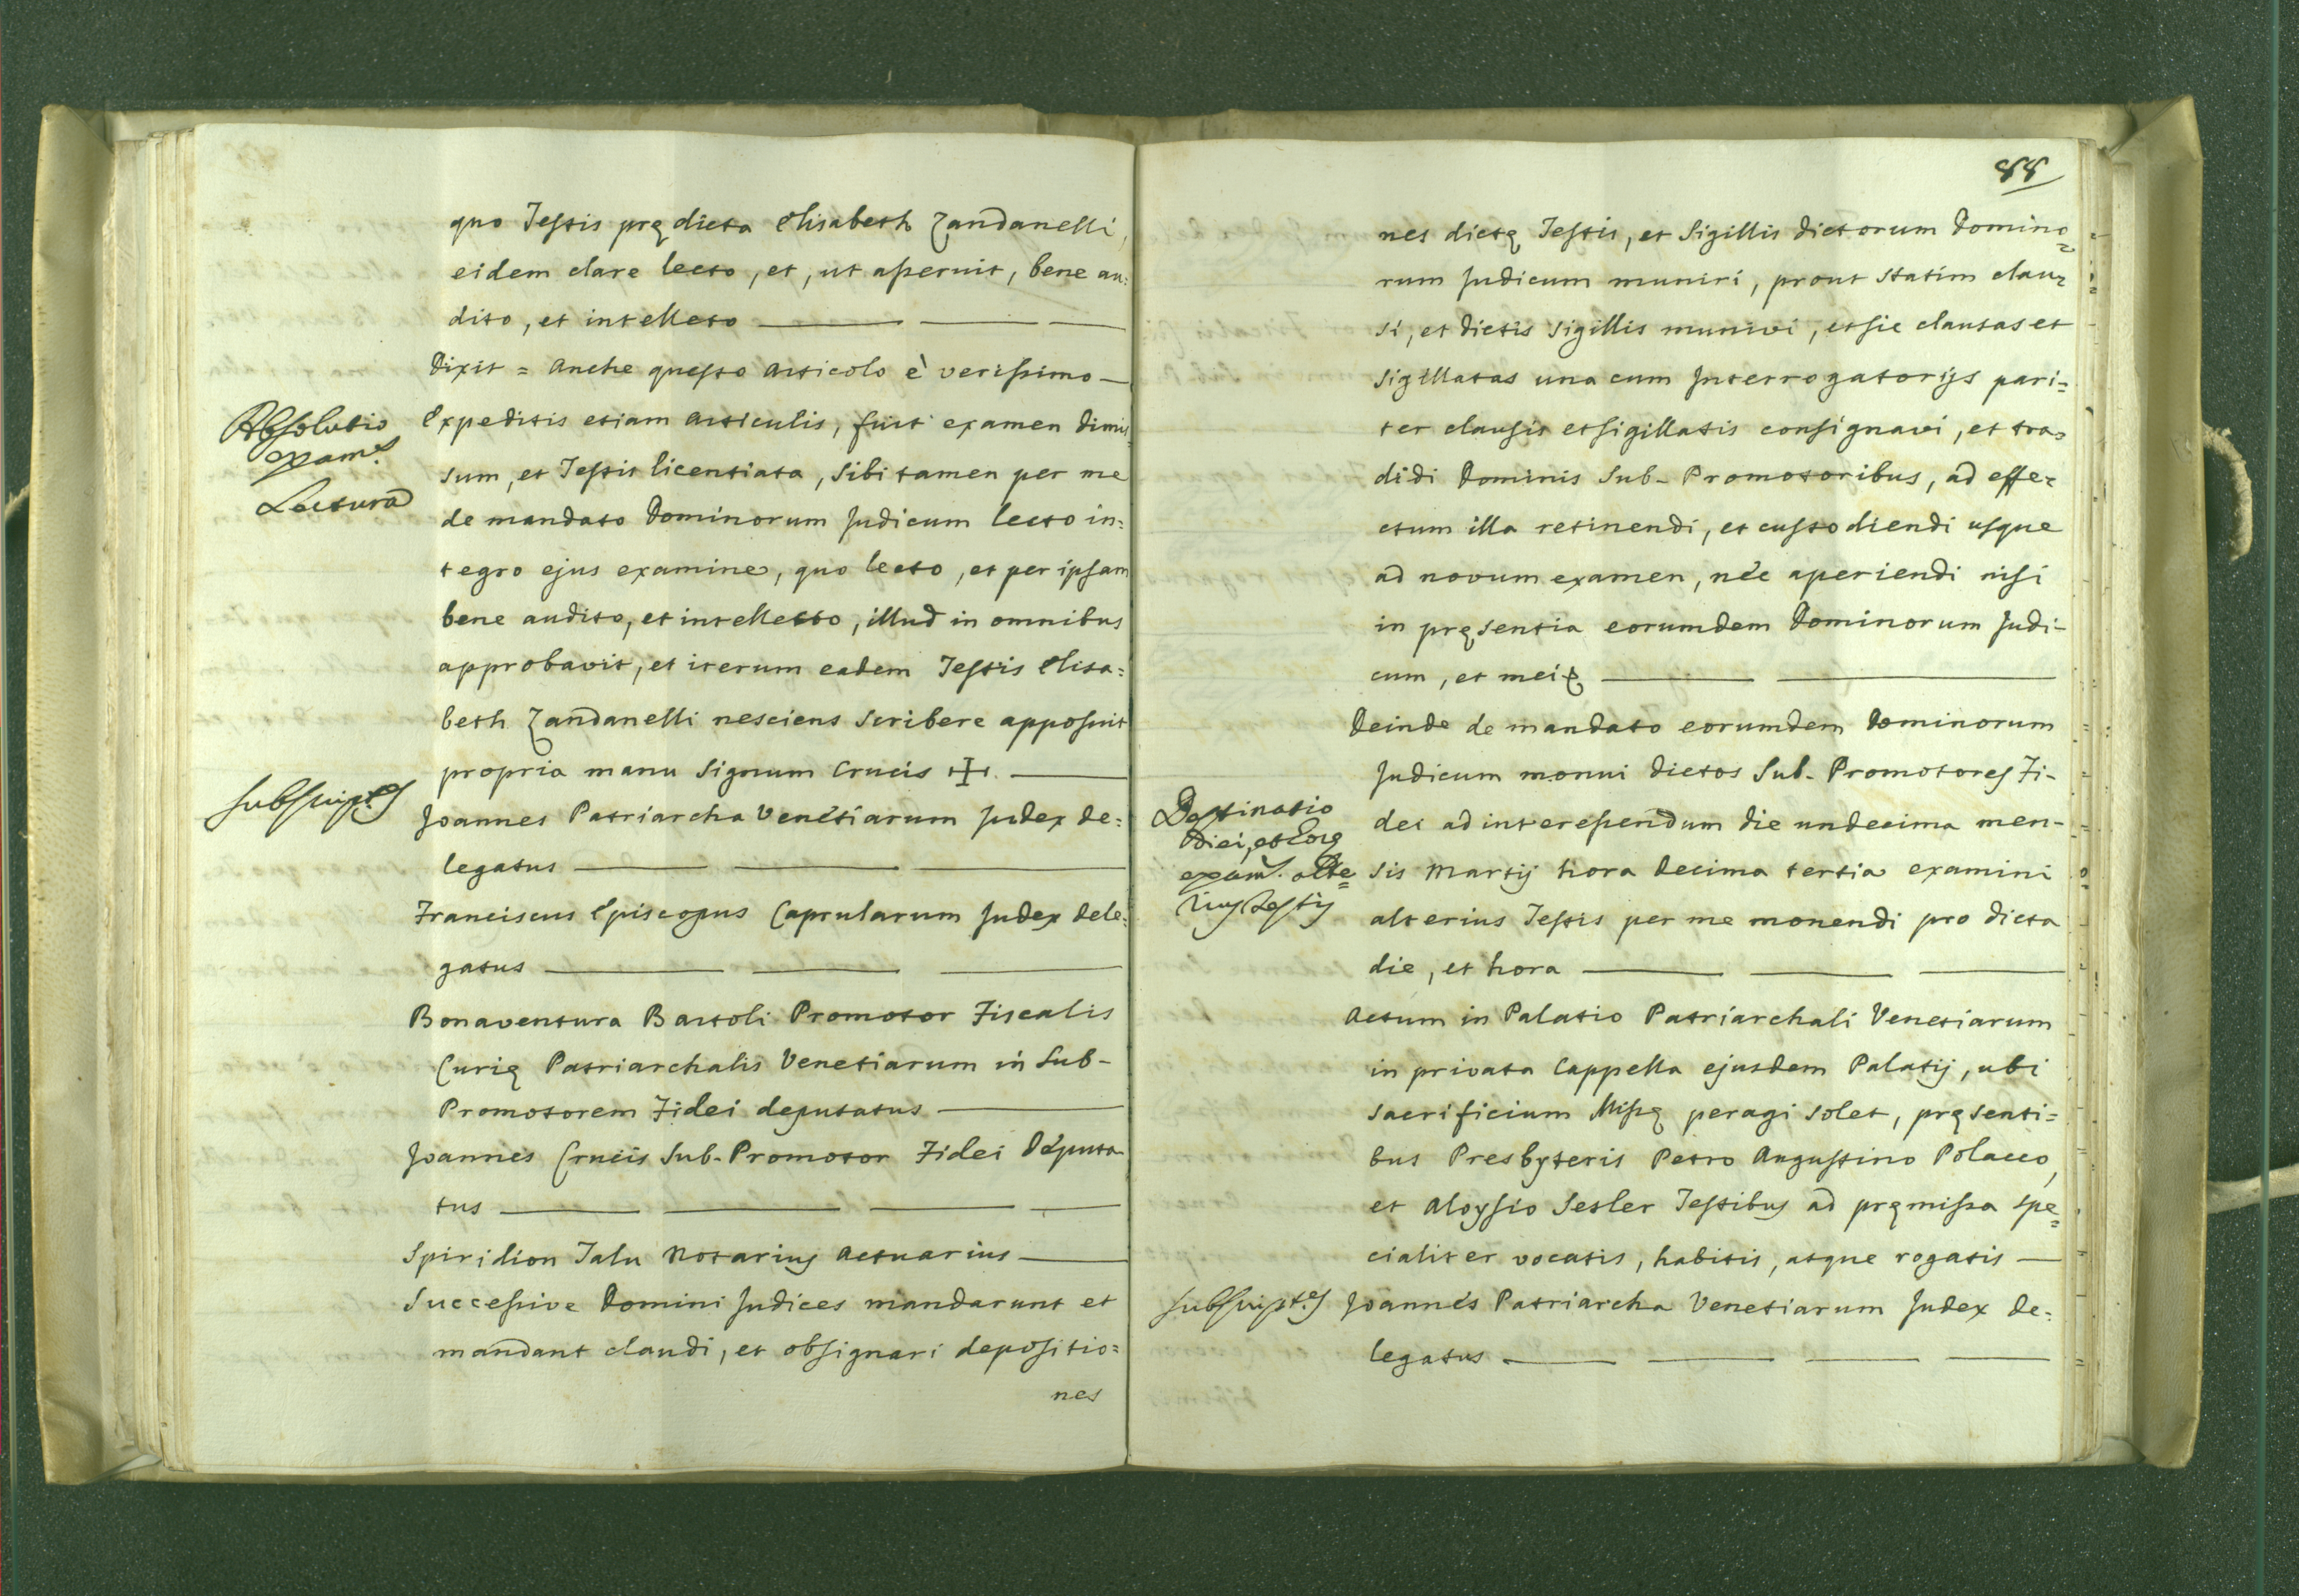 quo Testis prędicta Elisabeth Zandanelli,
eidem clare lecto, et, ut asseruit, bene au:
dito, et intellecto
Dixit = Anche questo Articolo è verissimo
Absolutio
exam.s
Lectura
Expeditis etiam Articulis, fuit examen dimis
sum, et Testis licentiata, sibi tamen per me
de mandato Dominorum Judicum lecto in:
tegro ejus examine, quo lecto, et per ipsam
bene audito, et intellecto, illud in omnibus
approbavit, et iterum eadem Testis Elisa:
beth Zandanelli nesciens scribere apposuit
propria manu signum Crucis ✠.
subscript.es
Joannes Patriarcha Venetiarum Judex de:
legatus
Franciscus Episcopus Caprularum Judex dele:
gatus
Bonaventura Bartoli Promotor Fiscalis
Curię Patriarchalis Venetiarum in Sub-
Promotorem Fidei deputatus
Joannes Crucis Sub-Promotor Fidei Deputa
tus
Spiridion Talu Notarius Actuarius
Successive Domini Judices mandarunt et
mandant claudi, et obsignari depositio:
nes
88
nes dictę Testis, et Sigillis dictorum Domino=
rum Judicum muniri, prout statim clau=
si, et dictis sigillis munivi, et sic clausas et
sigillatas una cum Interrogatorijs pari=
ter clausis et sigillatis consignavi, et tra=
didi Dominis Sub-Promotoribus, ad effe=
ctum illa retinendi, et custodiendi usque
ad novum examen, nec aperiendi nisi
in pręsentia eorumdem Dominorum Judi-
cum, et mei
Deinde de mandato eorumdem Dominorum
Judicum monui dictos Sub-Promotores Fi-
Destinatio
diei, et horę
exam.s alte=
rius Testis
dei ad interessendum die undecima men-
sis Martij hora decima tertia examini
alterius Testis per me monendi pro dicta
die, et hora
Actum in Palatio Patriarchali Venetiarum
in privata Cappella ejusdem Palatij, ubi
sacrificium Missę peragi solet, pręsenti=
bus Presbyteris Petro Augustino Polacco,
et Aloysio Sesler Testibus ad pręmissa spe=
cialiter vocatis, habitis, atque rogatis
subscript.es
Joannes Patriarcha Venetiarum Judex de:
legatus